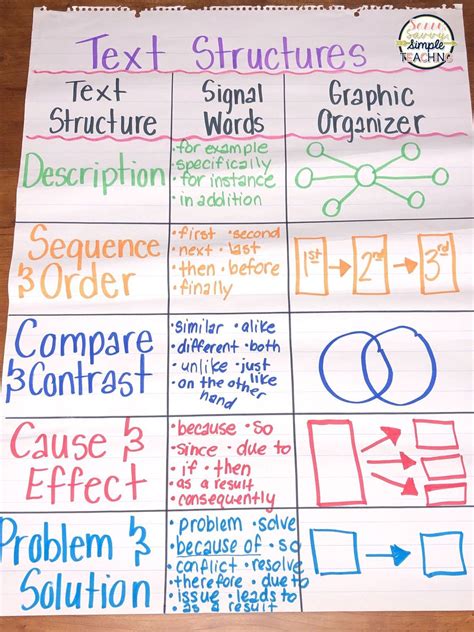 Sassy
Savvy
Simple
TEACHING
Text Structures
Text
Structure
Signal
Words
Graphic
Organizer
Description
• for example
• specifically
• for instance
• in addition
Sequence
& Order
• first • second
• next • last
• then • before
• finally
1st
2nd
3rd
Compare
& Contrast
• similar • alike
• different • both
• unlike • just like
• on the other
hand
Cause &
Effect
• because • so
• since • due to
• if • then
• as a result
• consequently
Problem &
Solution
• problem • solve
• because of • so
• conflict • resolve
• therefore • due to
• issue • leads to
• as a result